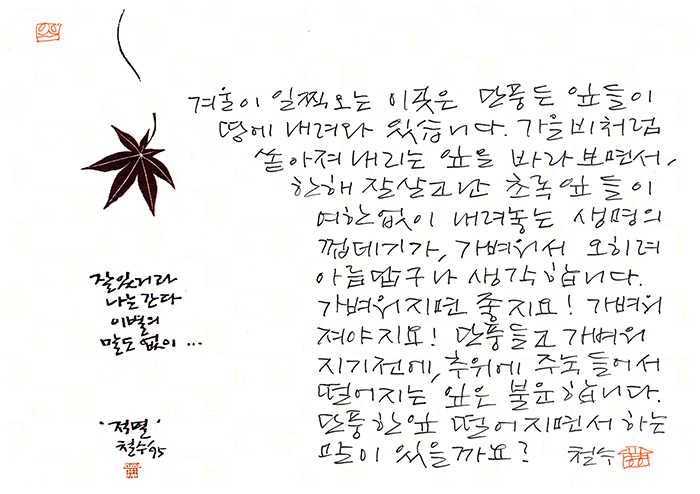 겨울이 일찍오는 이곳은 단풍든 잎들이
땅에 내려와 있습니다. 가을비처럼
쏟아져 내리는 잎을 바라보면서,
한해 잘살고난 초록잎들이
여한없이 내려놓는 생명의
껍데기가, 가벼워서 오히려
아름답구나 생각합니다.
가벼워지면 좋지요! 가벼워
져야지요! 단풍들고 가벼워
지기전에, 추위에 주눅들어서
떨어지는 잎은 불운합니다.
단풍한잎 떨어지면서 하는
말이 있을까요? 철수
잘있거라
나는간다
이별의
말도 없이 ...
'적멸'
철수 '95